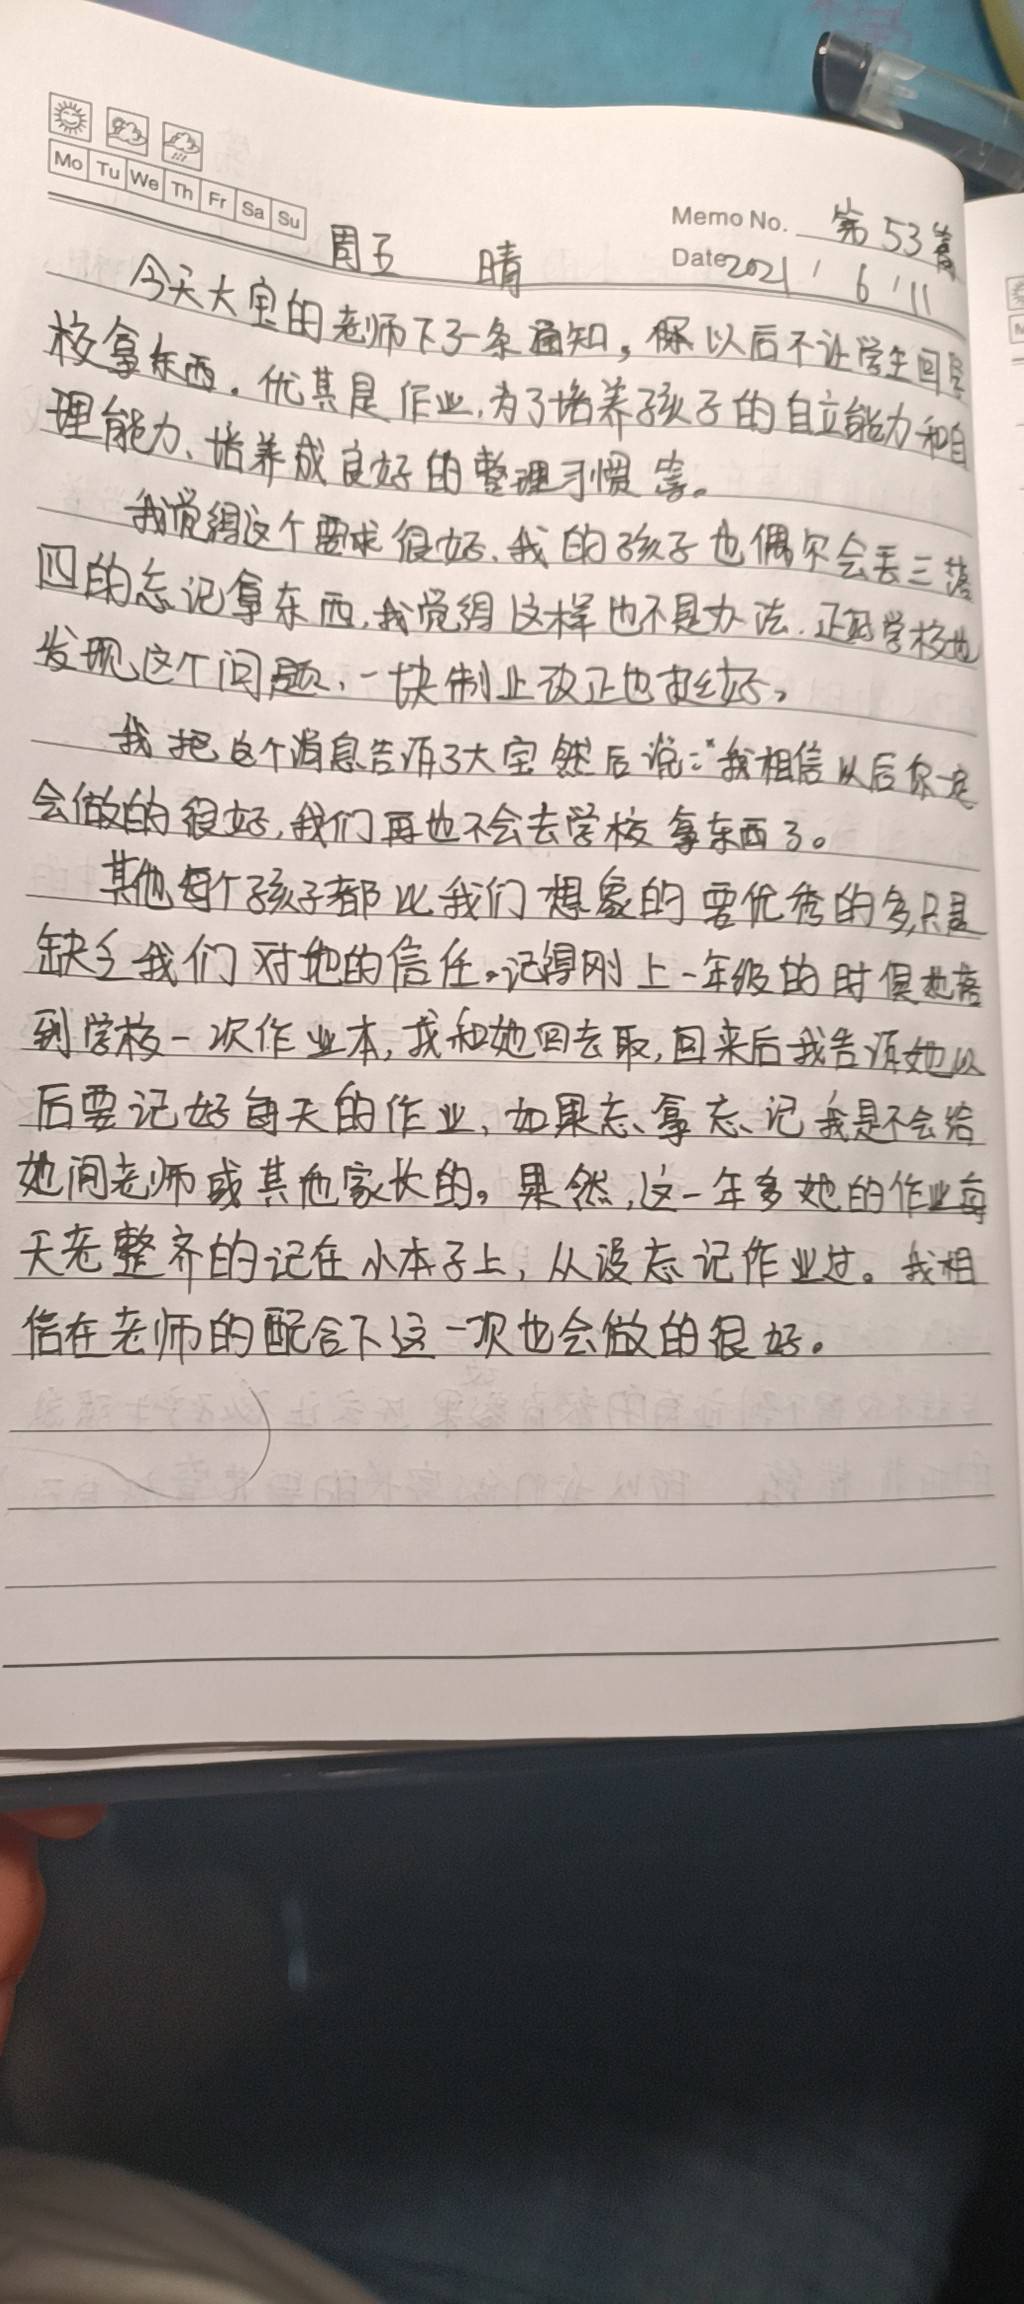 Mo Tu We Th Fr Sa Su
Memo No. 第53篇
周五 晴 Date 2021 6 11
今天大宝的老师下了一条通知，以后不让学生回学
校拿东西。优其是作业，为了培养孩子的自立能力和自
理能力、培养成良好的整理习惯等。
我觉得这个要求很好、我的孩子也偶尔会丢三落
四的忘记拿东西，我觉得这样也不是办法．正好学校也
发现这个问题、一块制止改正也挺好。
我把这个消息告诉了大宝然后说："我相信以后你一定
会做的很好，我们再也不会去学校拿东西了。
其他每个孩子都比我们想象的要优秀的多，只是
缺乏我们对他的信任。记得刚上一年级的时候她落
到学校一次作业本，我和她回去取，回来后我告诉她以
后要记好每天的作业、如果忘拿忘记我是不会给
她问老师或其他家长的。果然，这一年多她的作业每
天老整齐的记在小本子上，从没忘记作业过。我相
信在老师的配合下这一次也会做的很好。